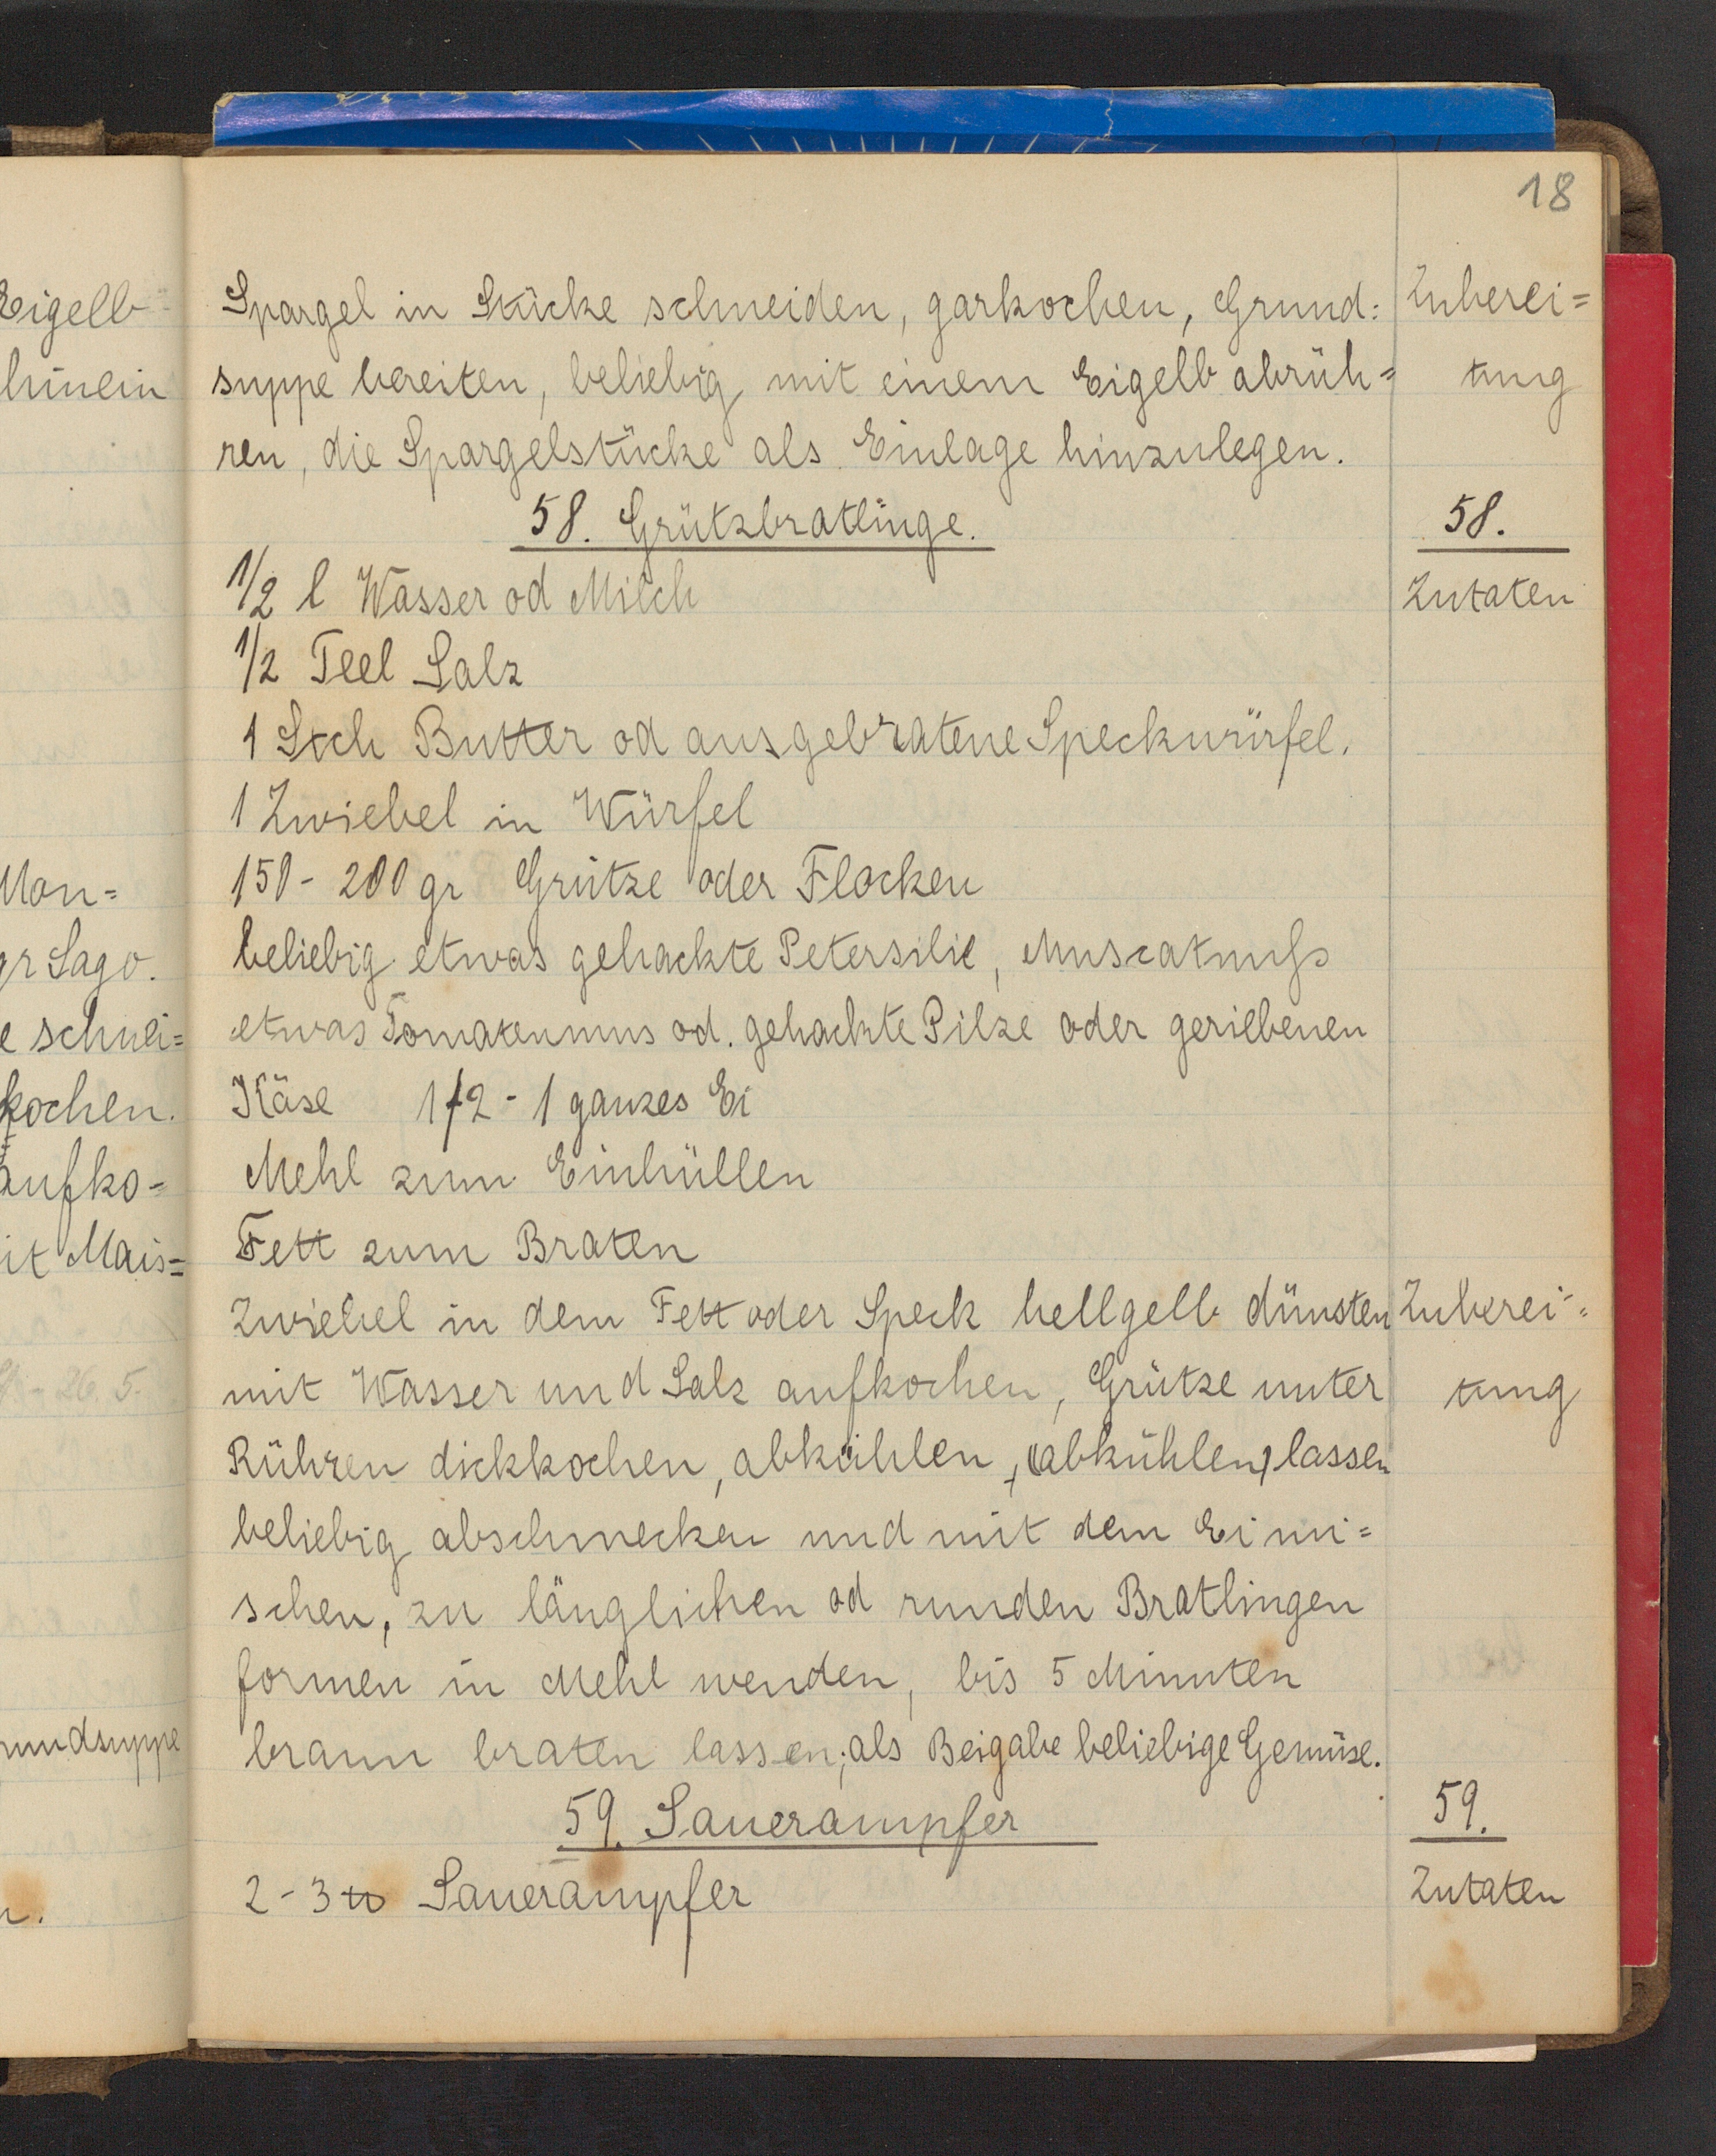 18
Eigelb
hinein
Man=
gr Sago.
e schnei=
kochen.
aufko-
it Mais=
26. 5.
rundsuppe
Spargel in Stücke schneiden, garkochen, Grund= Zuberei=
suppe bereiten, beliebig mit einem Eigelb abrüh= tung
ren, die Spargelstücke als Einlage hinzulegen.
58. Grützbratlinge. 58.
1/2 l Wasser od Milch Zutaten
1/2 Teel Salz
1 Stch Butter od ausgebratene Speckwürfel.
1 Zwiebel in Würfel
150 - 200 gr Grütze oder Flocken
beliebig etwas gehackte Petersilie, Muscatnuß
etwas Tomatenmus od. gehackte Pilze oder geriebenen
Käse 1/2 - 1 ganzes Ei
Mehl zum Einhüllen
Fett zum Braten
Zwiebel in dem Fett oder Speck hellgelb dünsten Zuberei=
mit Wasser und Salz aufkochen, Grütze unter tung
Rühren dickkochen, abkühlen, (abkühlen) lassen
beliebig abschmecken und mit dem Ei mi=
schen, zu länglichen od runden Bratlingen
formen in Mehl wenden, bis 5 Minuten
braun braten lassen; als Beigabe beliebige Gemüse.
59. Sauerampfer 59.
2 - 3 ℔ Sauerampfer Zutaten